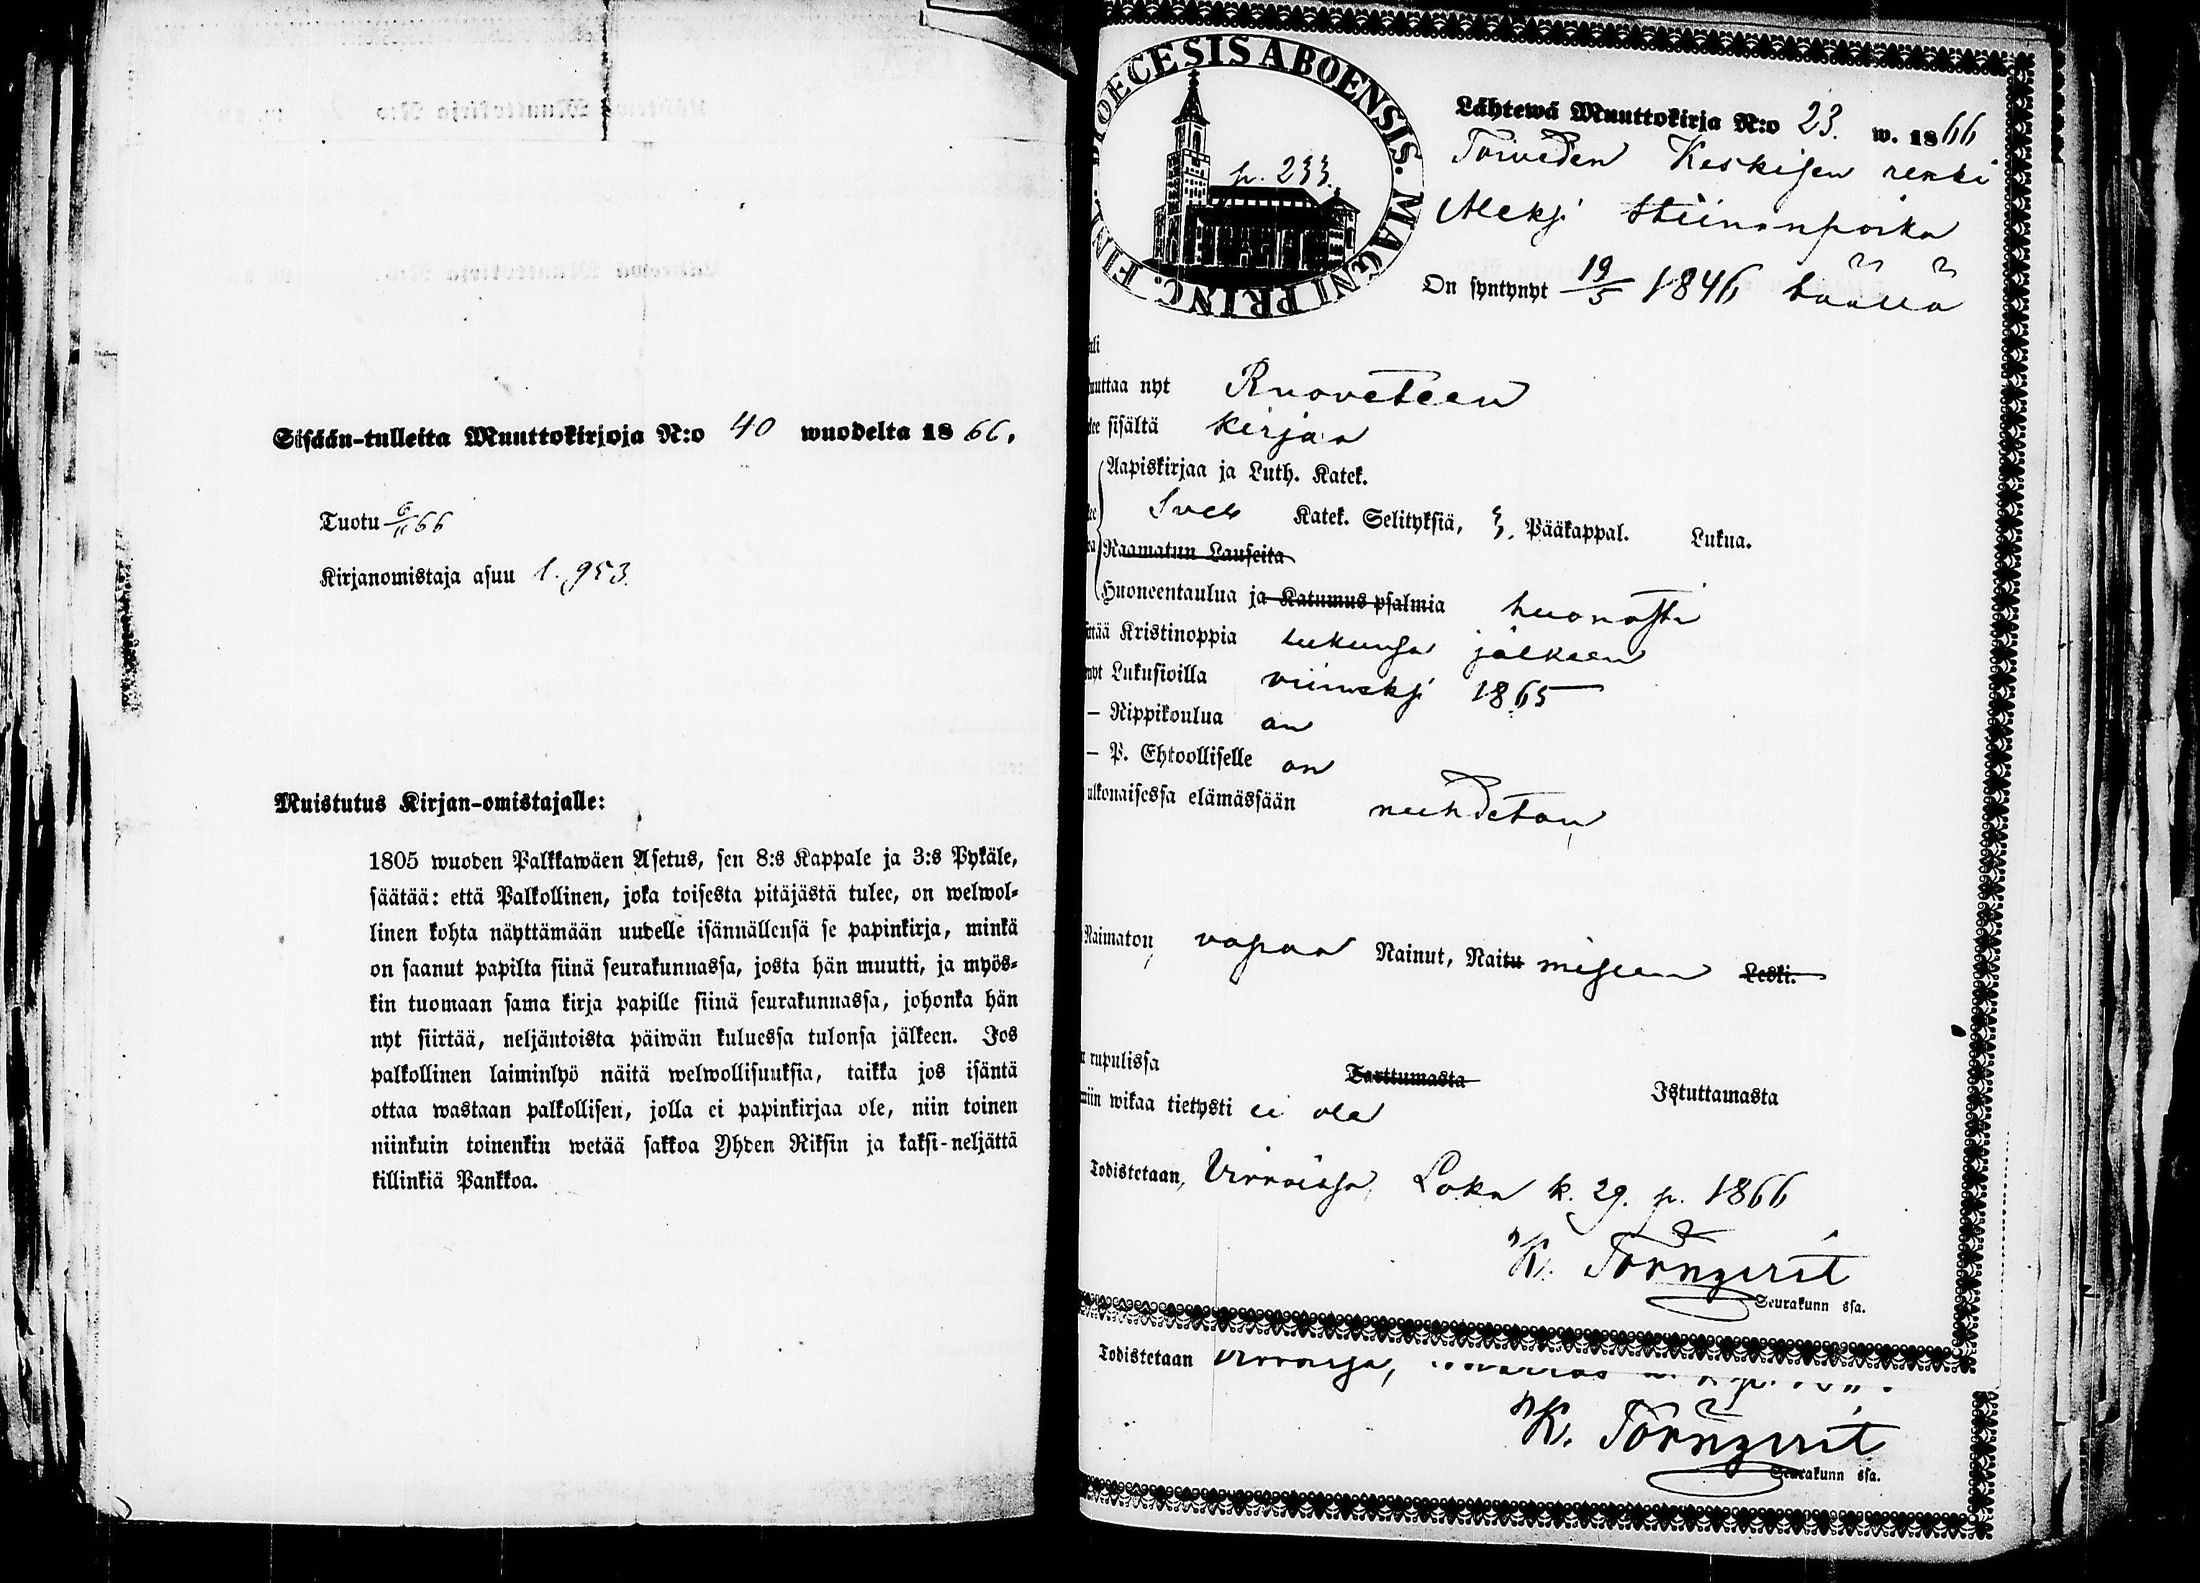 Sisään-tulleita Muuttokirjoja N:o 40 wuodelta 1866.
Tuotu 6/11 66
Kirjanomistaja asuu l. 953.
Muistutus Kirjan-omistajalle:
1805 wuoden Palkkawäen Asetus, sen 8:s Kappale ja 3:s Pykäle,
säätää: että Palkollinen, joka toisesta pitäjästä tulee, on welwol-
linen kohta näyttämään uudelle isännällensä se papinkirja, minkä
on saanut papilta siinä seurakunnassa, josta hän muutti, ja myös-
kin tuomaan sama kirja papille siinä seurakunnassa, johonka hän
nyt siirtää, neljäntoista päiwän kuluessa tulonsa jälkeen. Jos
palkollinen laiminlyö näitä welwollisuuksia, taikka jos isäntä
ottaa wastaan palkollisen, jolla ei papinkirjaa ole, niin toinen
niinkuin toinenkin wetää sakkoa Yhden Riksin ja kaksi-neljättä
killinkiä Pankkoa.
DIOECESIS ABOENSIS. MAGNI PRINC. FINL.
p. 233.
Lähtewä Muuttokirja N:o 23. w. 1866
Toiveden Keskisen renki
Aleksi Stiinanpoika
On syntynyt 19/5 1846 täällä
uli
uuttaa nyt Ruoveteen
dee sisältä kirjaa
Aapiskirjaa ja Luth. Kateк.
Sveb Katek. Selityksiä, 3. Pääkappal. Lukua.
Raamatun Lauseita
Huoneentaulua ja Katumus psalmia huonosti
ttää Kristinoppia lukunsa jälkeen
nyt Lukusioilla viimeksi 1865
– Rippikoulua on
– P. Ehtoolliselle on
ulkonaisessa elämässään nuhdeton
Naimaton, vapaa Nainut, Naitu miseen Leski.
n rupulissa Tarttumasta Istuttamasta
niin wikaa tietysti ei ole
Todistetaan, Virroissa, Loka k. 29. p. 1866
K. Törnqvist
Seurakunn ssa.
Todistetaan Virroissa,
K. Törnqvist
Seurakunn ssa.